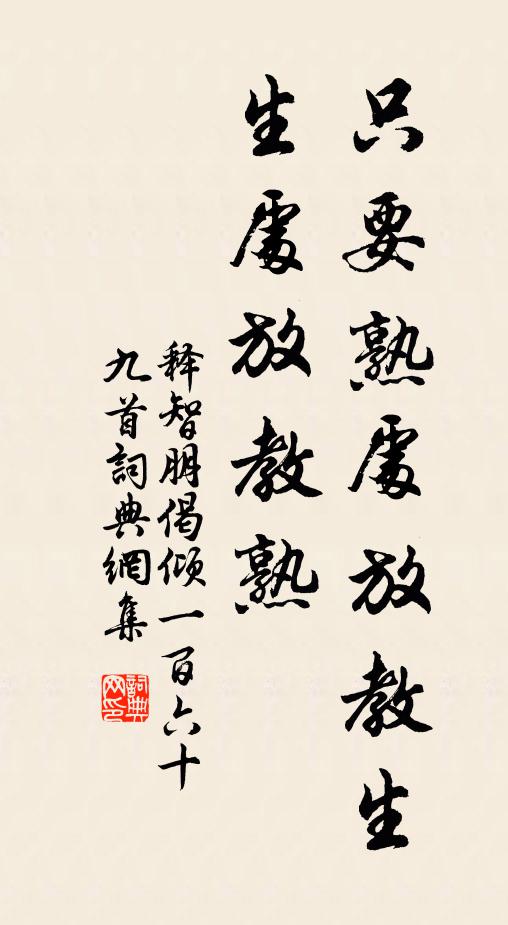 只要熟處放教生
生處放教熟
释智朋偈倾一百六十
九首詞典網集
詞典
网印